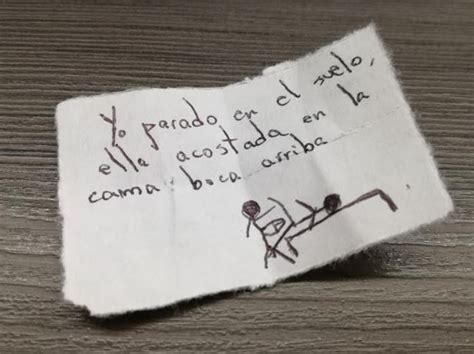 Yo parado en el suelo,
ella acostada en la
cama boca arriba